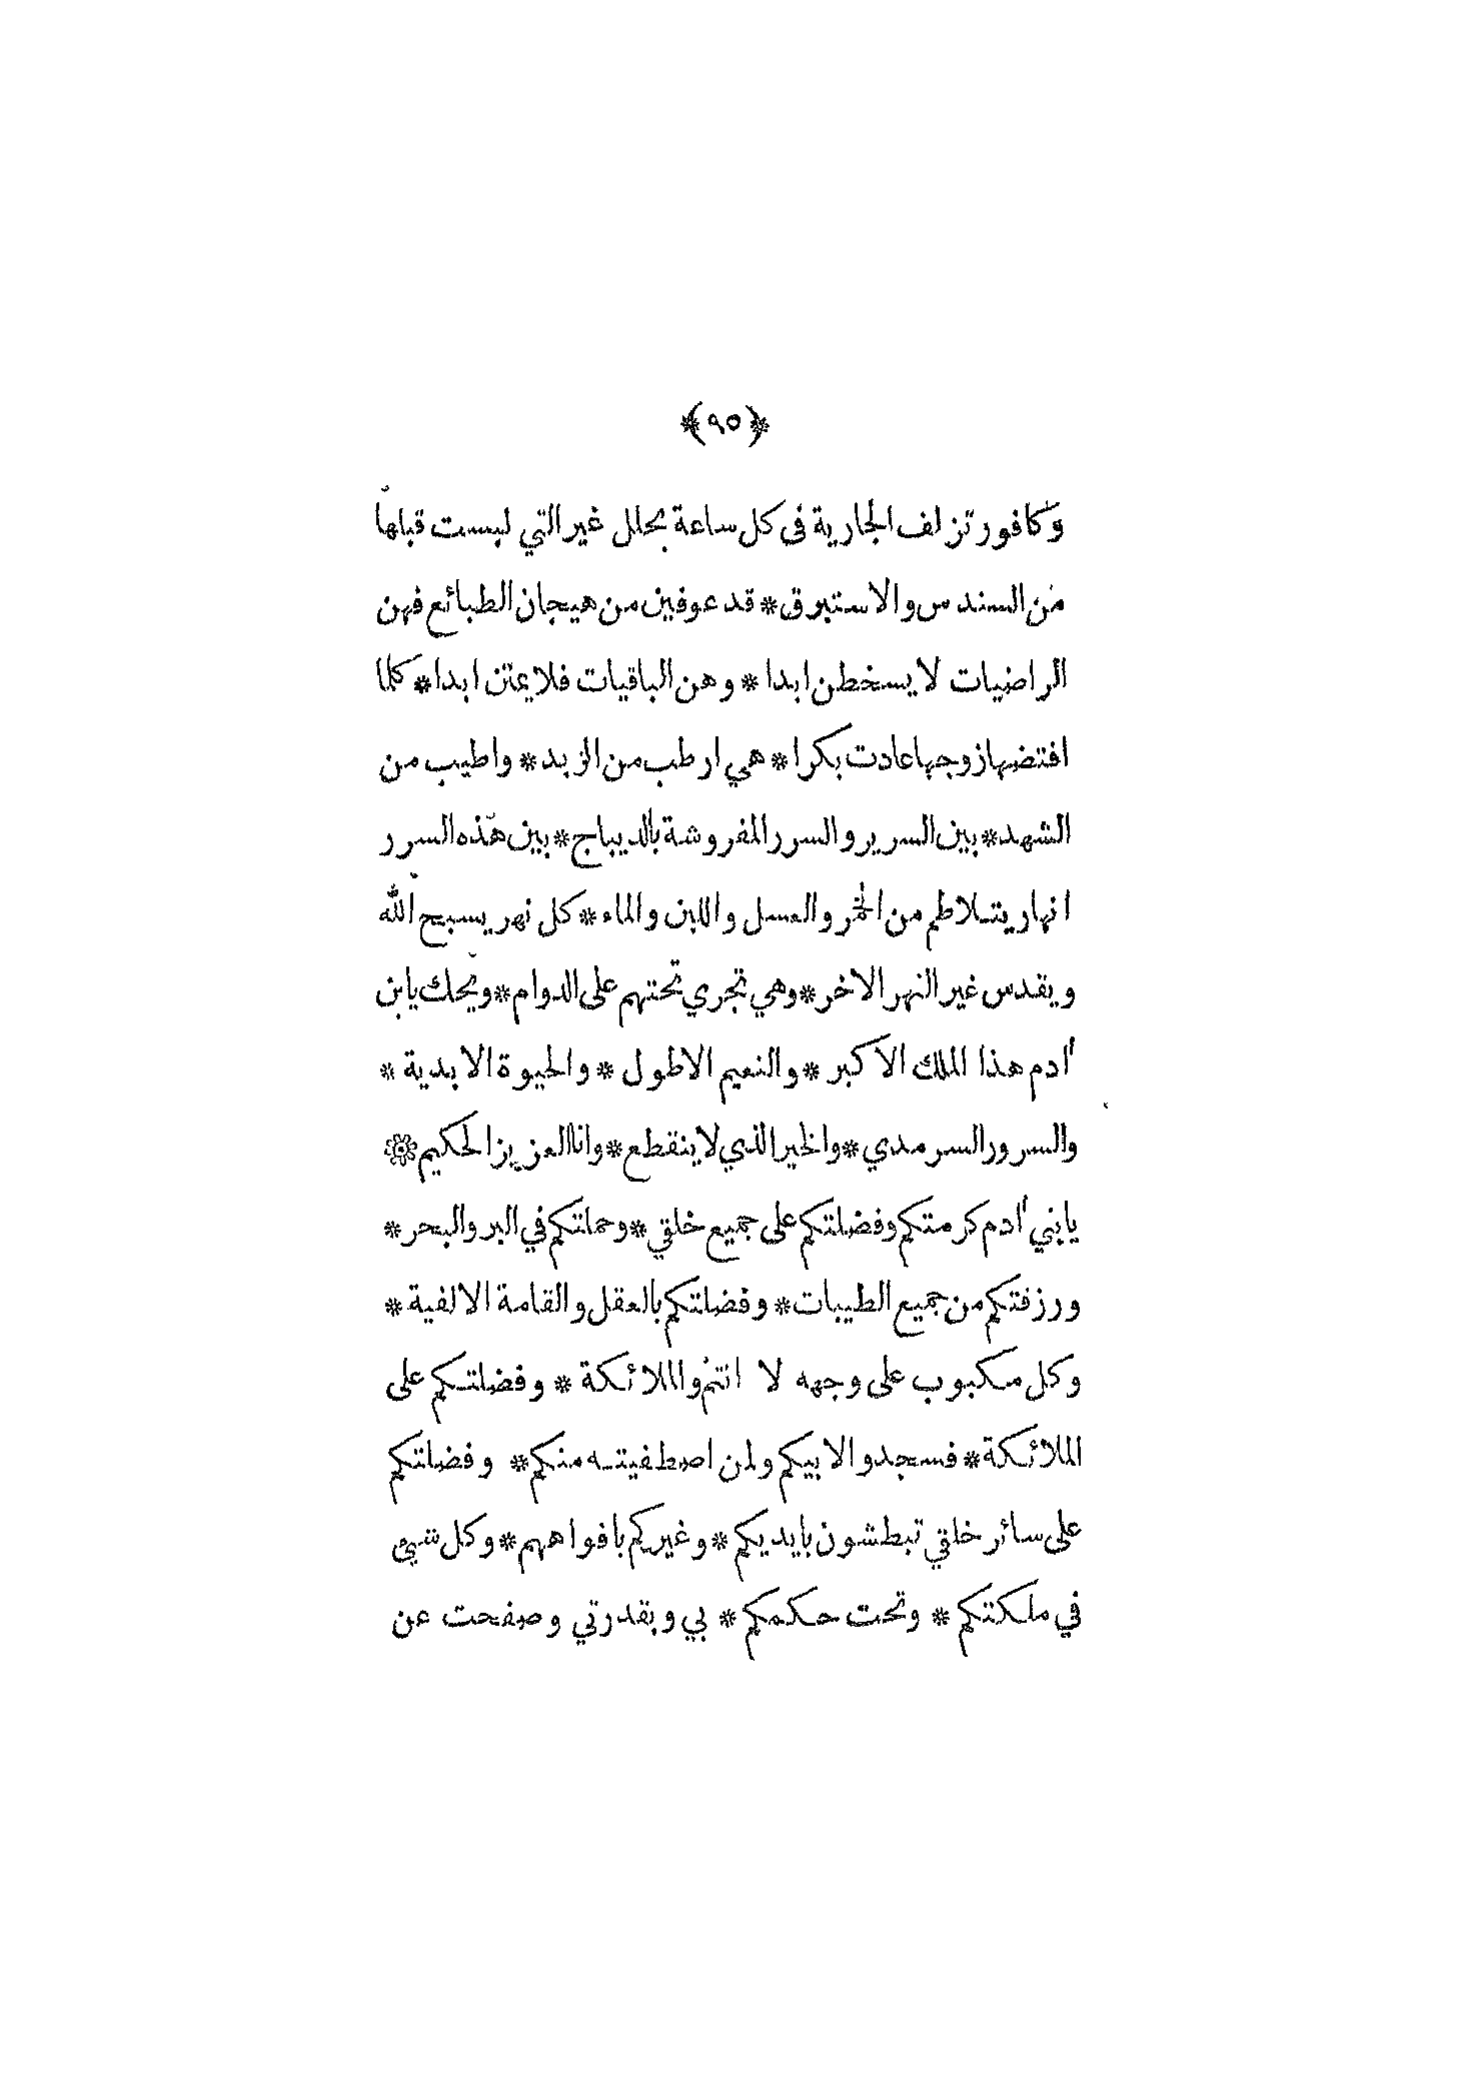 ﴿٩٥﴾
وكافور تزلف الجارية فى كل ساعة بحلل غير التي لبست قبلها
من السندس والاستبرق * قد عوفين من هيجان الطبائع فهن
الراضيات لا يسخطن ابدا * وهن الباقيات فلا يمتن ابدا * كلما
افتضها زوجها عادت بكرا * هي ارطب من الزبد * واطيب من
الشهد * بين السرير والسرر المفروشة بالديباج * بين هذه السرر
انهار يتلاطم من الخمر والعسل واللبن والماء * كل نهر يسبح الله
ويقدس غير النهر الاخر * وهي تجري تحتهم على الدوام * ويحك يابن
أدم هذا الملك الاكبر * والنعيم الاطول * والحيوة الابدية *
والسرور السرمدي * والخير الذي لا ينقطع * وانا العزيز الحكيم ۞
يابني أدم كرمتكم وفضلتكم على جميع خلقي * وحملتكم في البر والبحر *
ورزقتكم من جميع الطيبات * وفضلتكم بالعقل والقامة الالفية *
وكل مكبوب على وجهه لا انتم والملائكة * وفضلتكم على
الملائكة * فسجدوا لابيكم ولمن اصطفيته منكم * وفضلتكم
على سائر خلقي تبطشون بايديكم * وغيركم بافواههم * وكل شيء
في ملكتكم * وتحت حكمكم * بي وبقدرتي وصفحت عن